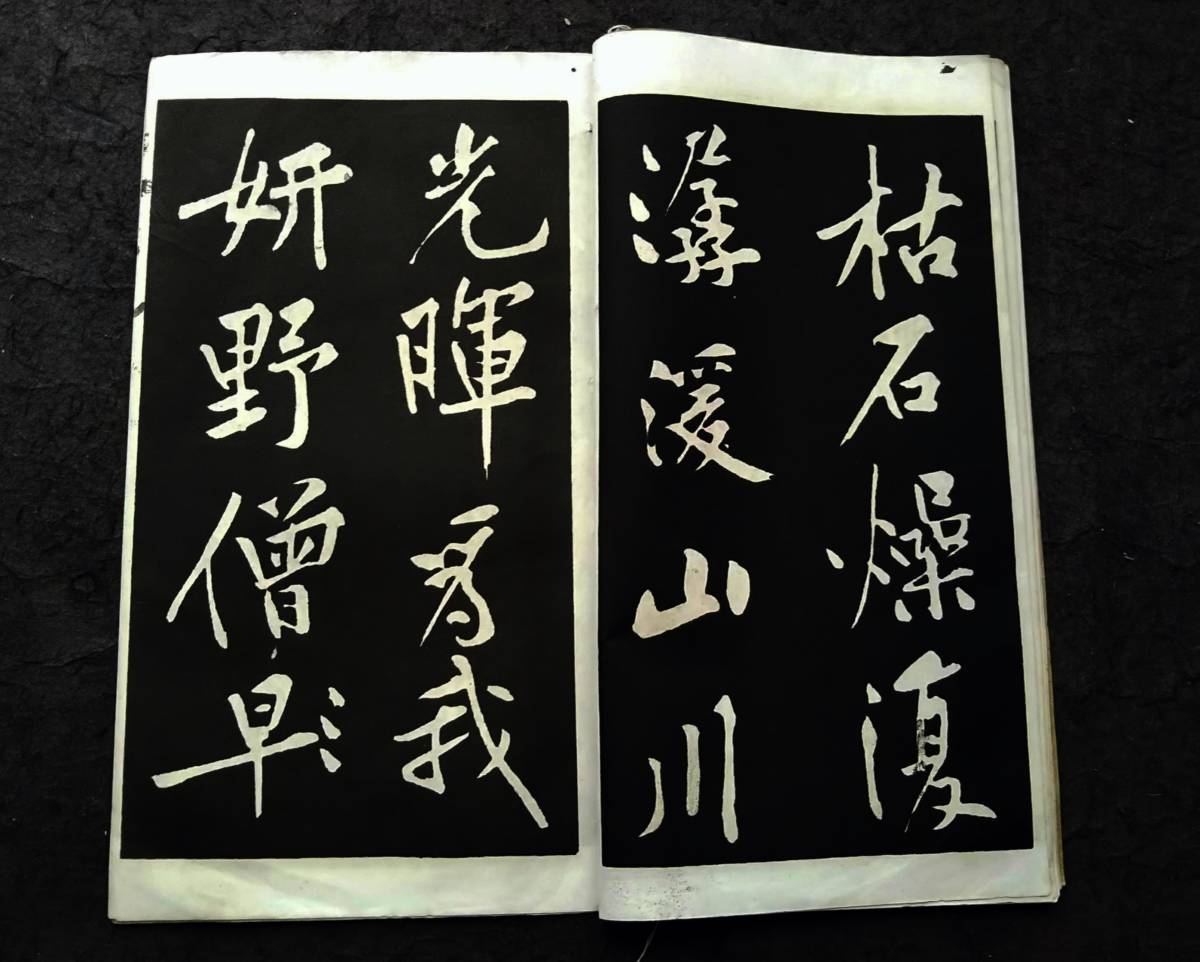 枯石燥復
潺湲山川
光暉為我
妍野僧早